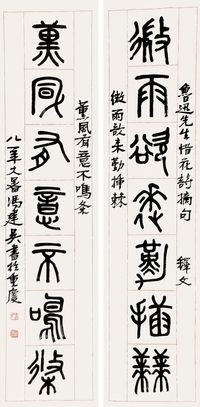 魯迅先生惜花詩摘句 釋文
微雨欲來勤插棘
微雨欲来勤插棘
薰風有意不鳴条
薰風有意不鳴條
八一年大暑馮建吴書於重慶